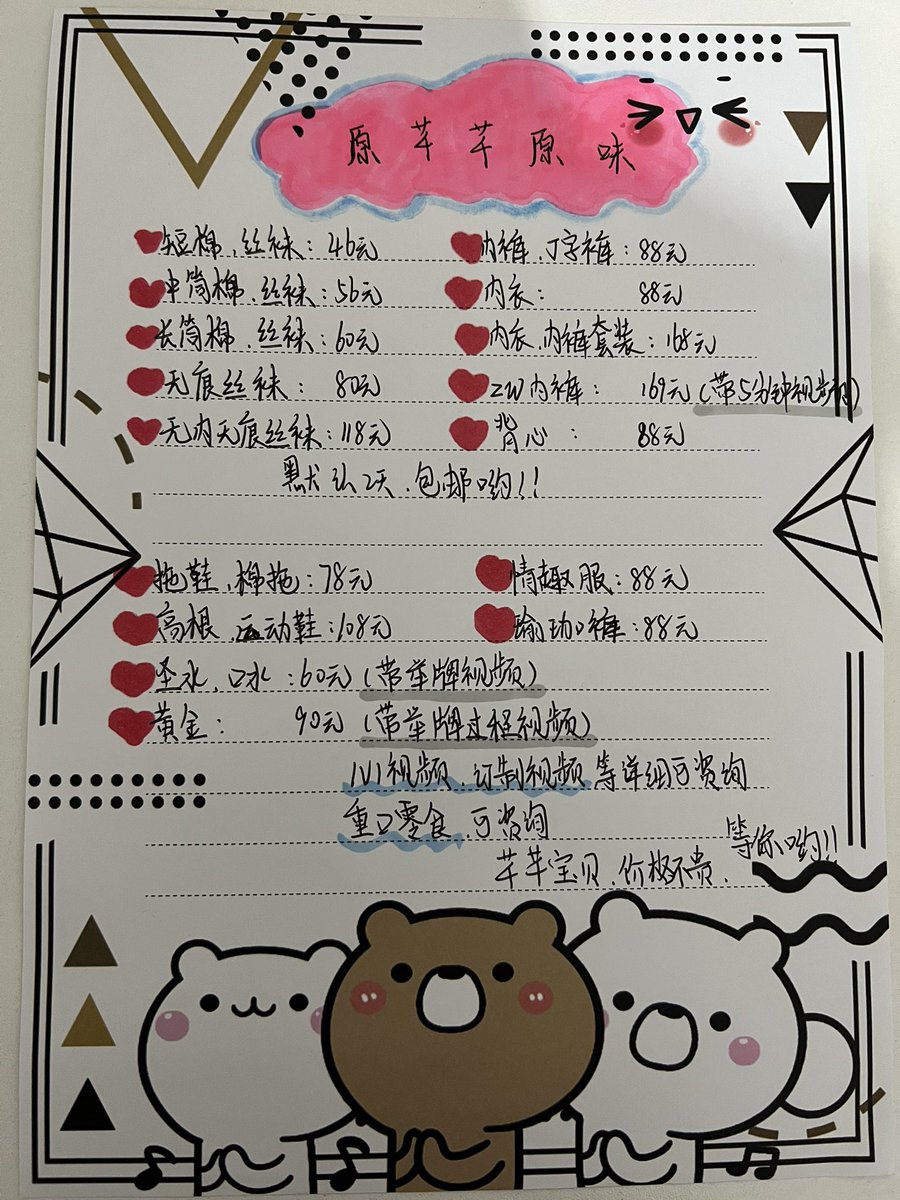 原芊芊原味
短棉、丝袜：46元 内裤、丁字裤：88元
中筒棉、丝袜：56元 内衣： 88元
长筒棉、丝袜：60元 内衣、内裤套装：168元
无痕丝袜： 80元 ZW内裤： 169元（带5分钟视频）
无内无痕丝袜：118元 背心： 88元
默认2天、包邮哟!!
拖鞋、棉拖：78元 情趣服：88元
高根、运动鞋：108元 瑜加裤：88元
圣水、口水：60元（带举牌视频）
黄金： 90元（带举牌过程视频）
1V1视频、订制视频等详细可资询
重口零食、可资询
芊芊宝贝、价格不贵、等你哟!!